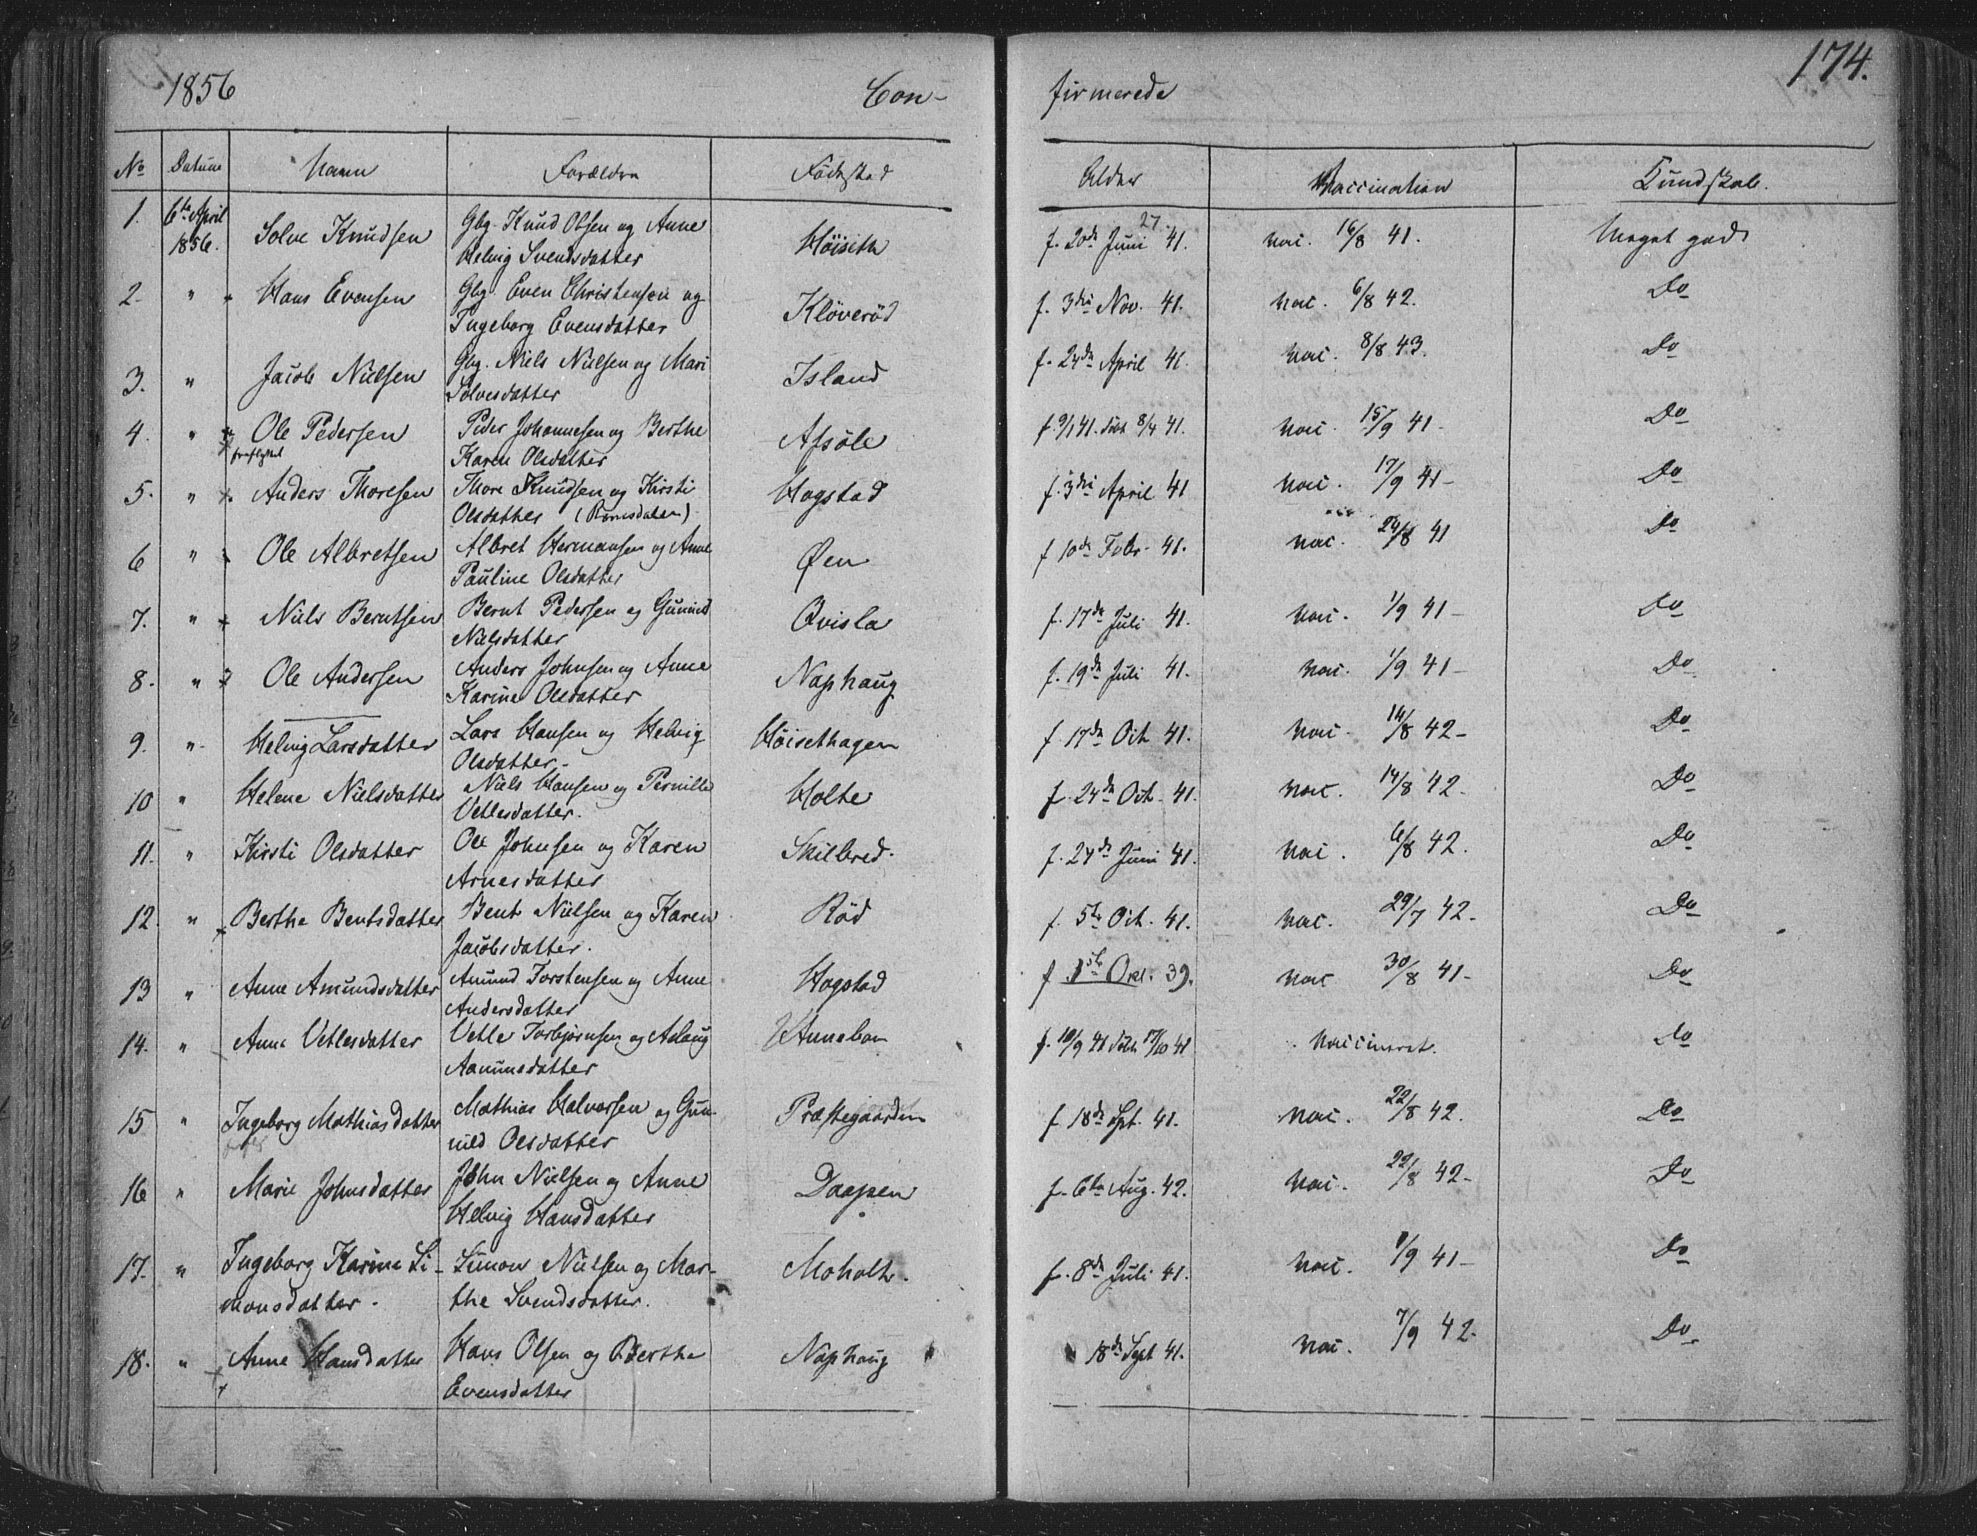 1856 Con- firmerede 174.
No Datum Navn Forældre Fødested Alder Vaccination Kundskab.
1. 6te April 1856. Solve Knudsen Gbg. Knud Olsen og Anne Helvig Svendsdatter Høiseth f. 20de Juni 41. 27 vac. 16/8 41. Meget god
2. " Hans Evensen Gbg. Even Christensen og Ingeborg Evensdatter Kløverød f. 3die Nov. 41. vac. 6/8 42. Do
3. " Jacob Nielsen Gbg. Niels Nielsen og Mari Solvesdatter Island f. 24de April 41. vac. 8/8 43. Do
4. " Ole Pedersen fraflyttet Peder Johannesen og Berthe Karen Olsdatter Afsøle f. 9/1 41. døbt 8/4 41. vac. 15/9 41- Do
5. " Anders Thoresen Thore Knudsen og Kirsti Olsdatter (Romsdalen) Hogstad f. 3die April 41 vac. 17/9 41- Do
6 " Ole Albretsen Albret Hermansen og Anne Pauline Olsdatter Øen f 10de Febr. 41. vac. 24/8 41 Do
7. " Niels Berntsen Bernt Pedersen og Gunnild Nielsdatter Qvisla f. 17de Juli 41. vac. 1/9 41- Do
8. " Ole Andersen Anders Johnsen og Anne Karine Olsdatter Naphaug f. 19de Juli 41. vac. 1/9 41- Do
9. " Helvig Larsdatter Lars Hansen og Helvig Olsdatter.- Høisethagen f. 17de Oct. 41. vac. 14/8 42- Do
10 " Helene Nielsdatter Niels Hansen og Pernille Vetlesdatter. Holte f. 24de Oct. 41. vac. 14/8 42. Do
11. " Kirsti Olsdatter Ole Johnsen og Karen Arnesdatter Skilbred. f. 24de Juni 41. vac. 6/8 42. Do
12. " Berthe Bentsdatter Bent Nielsen og Karen Jacobsdatter. Rød f. 5te Oct. 41. vac. 29/7 42- Do
13 " Anne Amundsdatter Amund Torstensen og Anne Andersdatter Hogstad f 1ste Oct. 39. vac 30/8 41- Do
14. " Anne Vetlesdatter Vetle Torbjørnsen og Aslaug Aanunsdatter Hannebon f. 10/9 41 døbt 17/10 41 Vaccineret. Do
15 " Ingeborg Mathiasdatter Mathias Halvorsen og Gunnild Olsdatter Præstegaarden f. 18de Spt. 41. vac. 22/8 42. Do
16 " Marie Johnsdatter John Nielsen og Anne Helvig Hansdatter Daapen f. 6te Aug. 42. vac. 22/8 42- Do
17. " Ingeborg Karine Simonsdatter. Simon Nielsen og Marthe Svendsdatter. Moholt. f. 8de Juli 41. vac. 1/9 41- Do
18. " Anne Hansdatter Hans Olsen og Berthe Evensdatter Naphaug 18de Sept 41. vac. 7/9 42. Do.